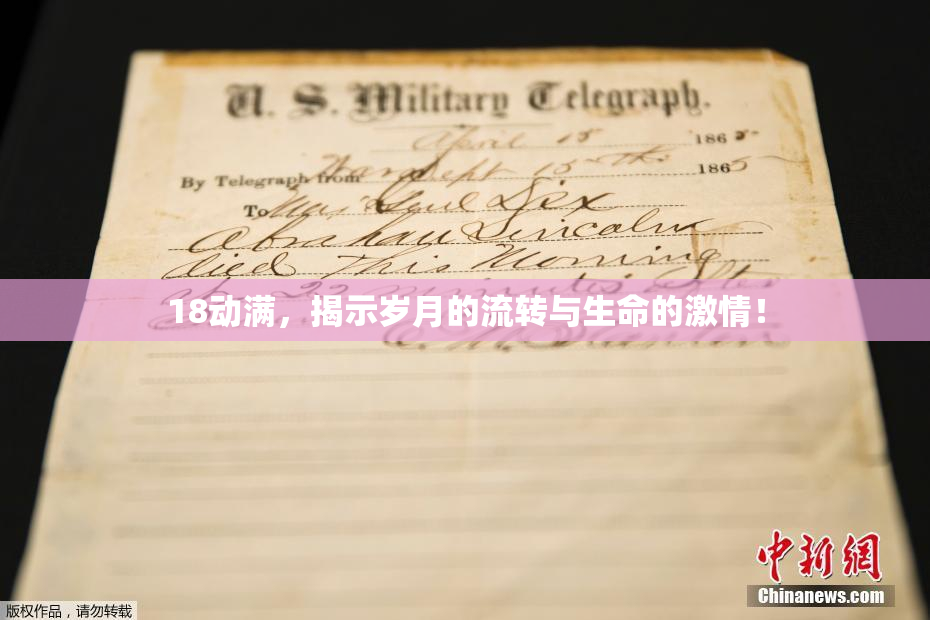 U. S. Military Telegraph.
April 15 1865
By Telegraph from War Dept 15th 1865
To Maj Genl Dix
Abraham Lincoln
died This Morning
at 22 minutes after
18动满，揭示岁月的流转与生命的激情！
E. M. Stanton
中新网
Chinanews.com
版权作品，请勿转载